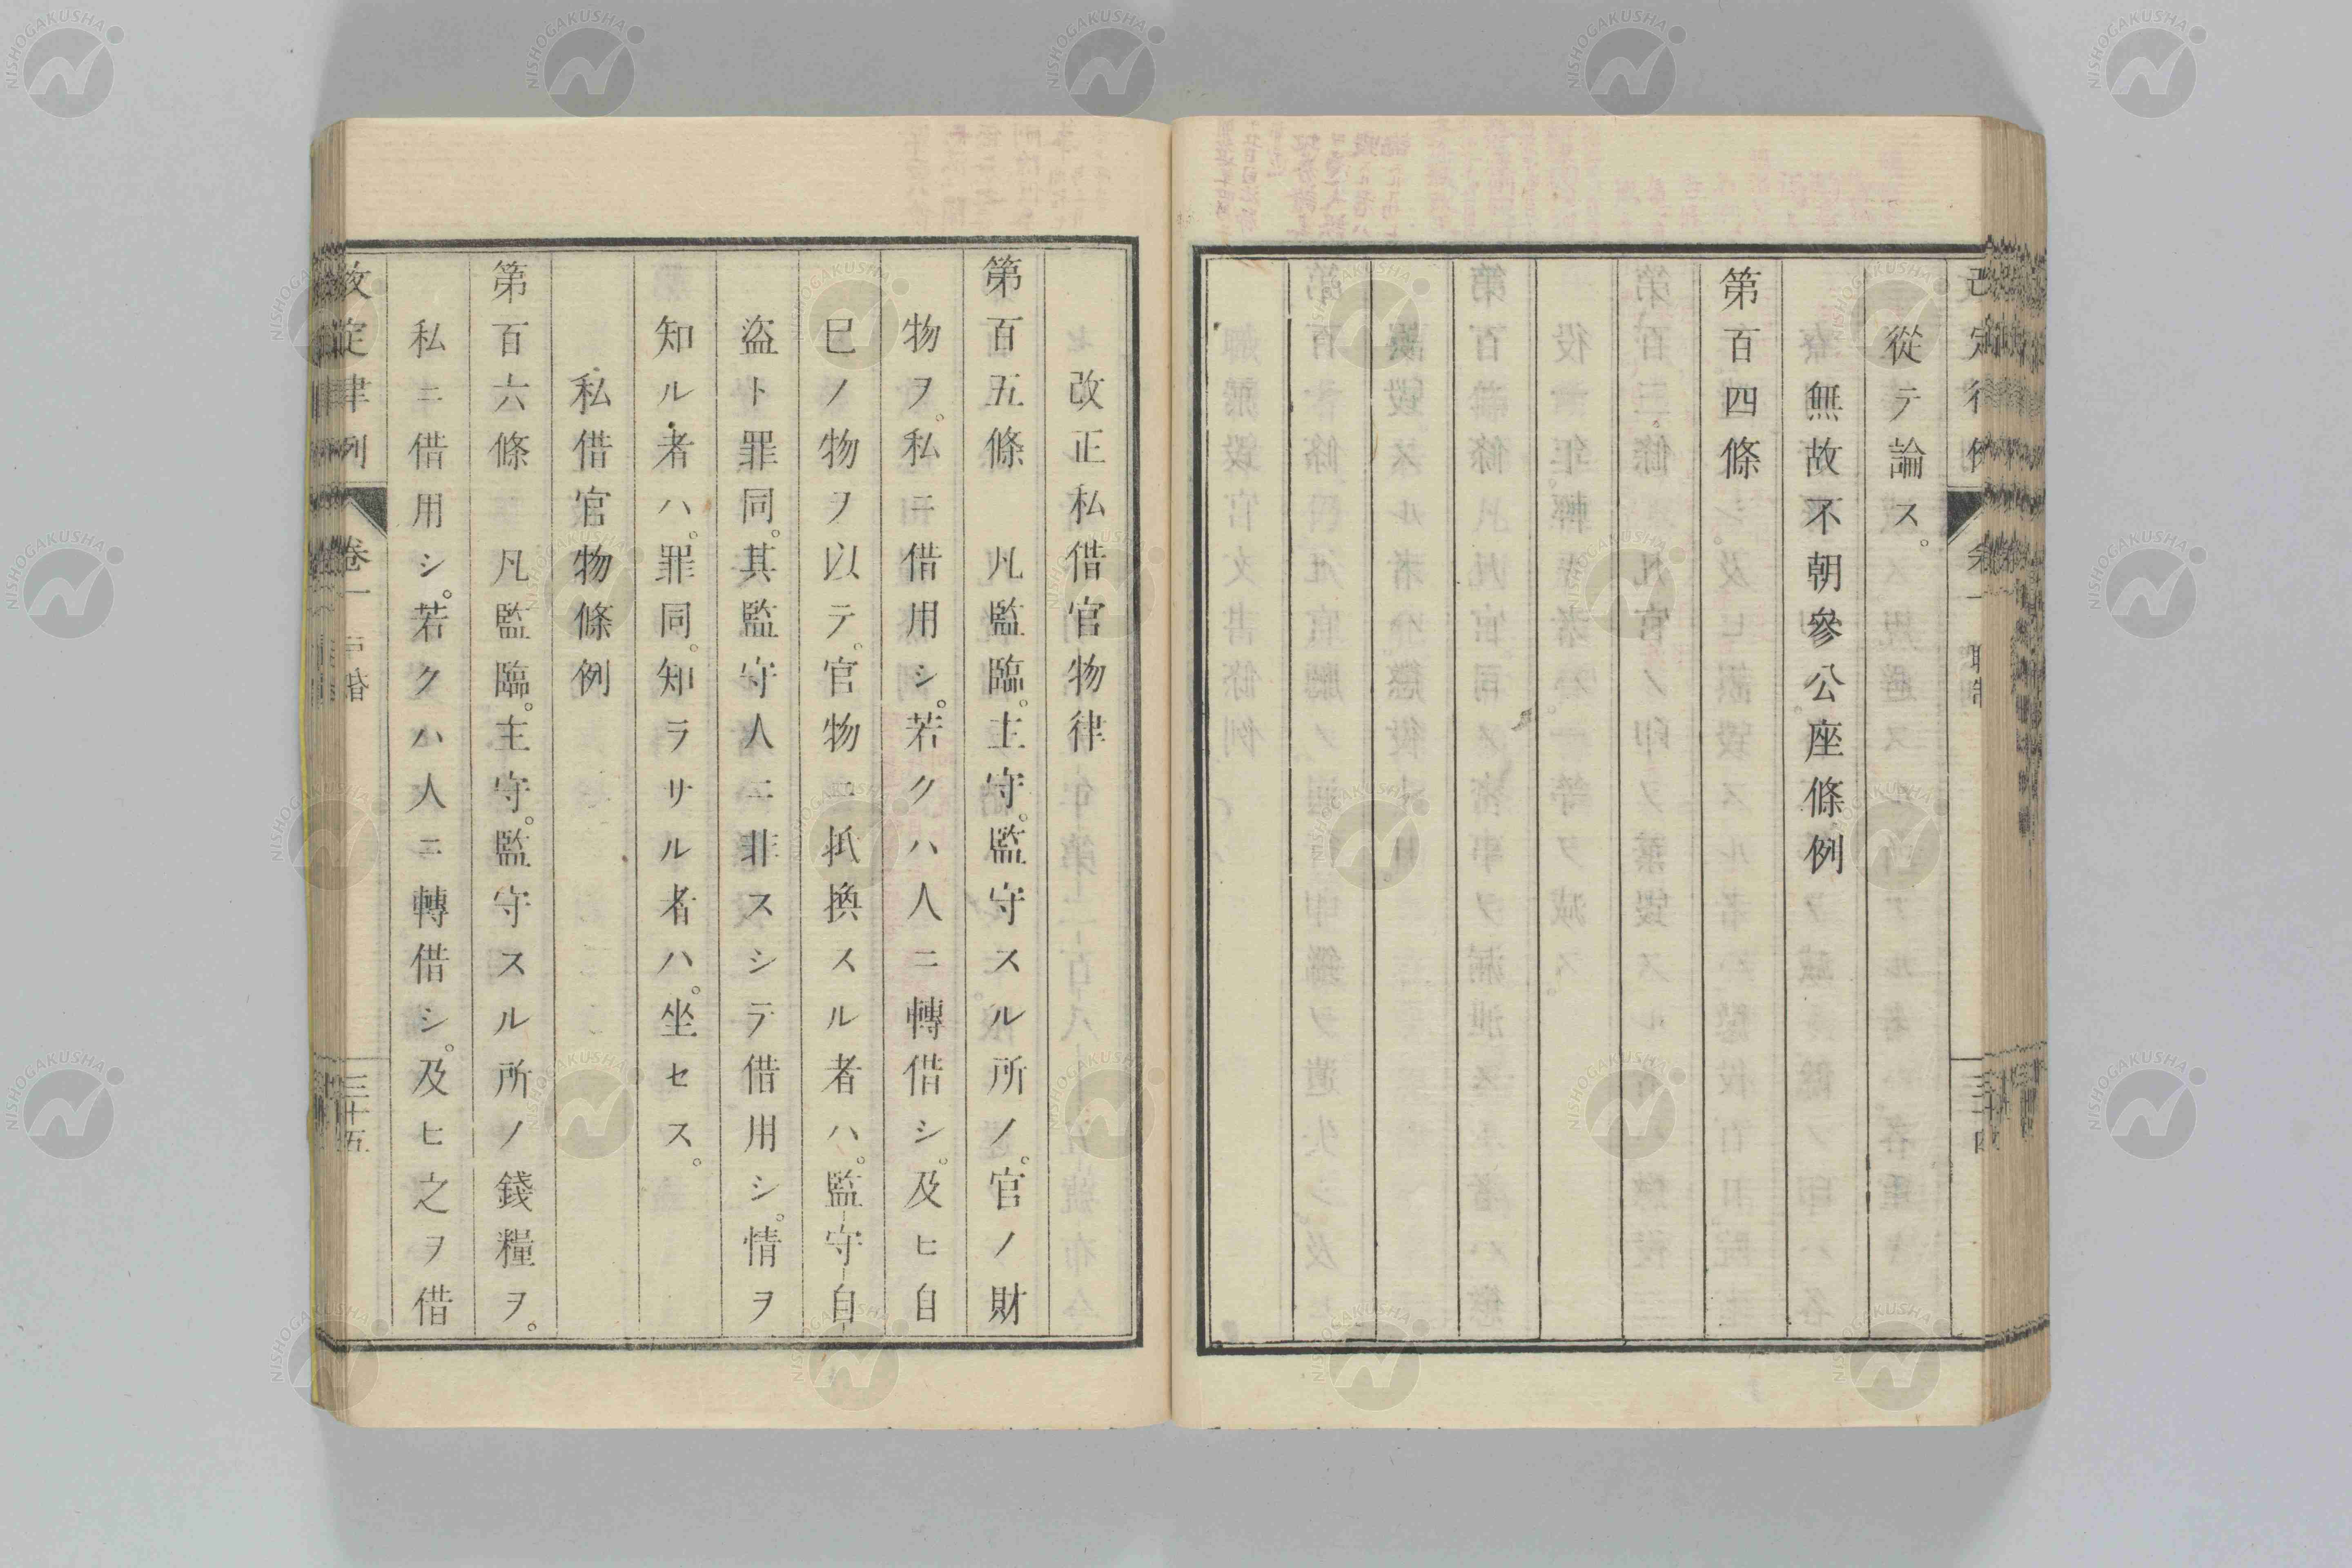 從テ論ス。
無故不朝參公座條例
第百四條
改正私借官物律
第百五條　凡監臨。主守。監守スル所ノ。官ノ財
物ヲ。私ニ借用シ。若クハ人ニ轉借シ。及ヒ自
已ノ物ヲ以テ。官物ニ抵換スル者ハ。監守自
盜ト罪同。其監守人ニ非スシテ借用シ。情ヲ
知ル者ハ。罪同。知ラサル者ハ。坐セス。
私借官物條例
第百六條　凡監臨。主守。監守スル所ノ錢糧ヲ。
私ニ借用シ。若クハ人ニ轉借シ。及ヒ之ヲ借
卷一
三十五
NISHOGAKUSHA